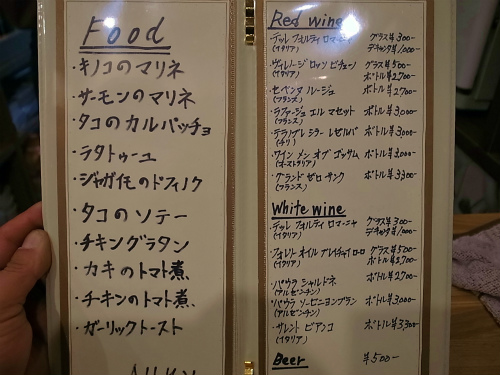 Food
・キノコのマリネ
・サーモンのマリネ
・タコのカルパッチョ
・ラタトゥーユ
・ジャガイモのドフィノク
・タコのソテー
・チキングラタン
・カキのトマト煮
・チキンのトマト煮
・ガーリックトースト
Red wine
・デッレ フォルティ ロマーニャ グラス¥300-
(イタリア) デキャンタ¥1,000-
・ヴィレージ ロッソ ピチェーノ グラス¥500-
(イタリア) ボトル¥2,700-
・セペンタ ルージュ ボトル¥2,700-
(フランス)
・ラファージュ エル マセット ボトル¥3,000-
(フランス)
・テラノブレ シラー レゼルバ ボトル¥3,000-
(チリ)
・ワイン メン オブ ゴッサム ボトル¥3,000-
(オーストラリア)
・グランド ゼロ サンク ボトル¥3,300
(フランス)
White wine
・デッレ フォルティ ロマーニャ グラス¥300-
(イタリア) デキャンタ¥1,000-
・フォレト オイル グラス¥500-
(イタリア) ボトル¥2,700-
・パウラ シャルドネ ボトル¥2,700-
(アルゼンチン)
・パウラ ソービニヨンブラン ボトル¥3,000-
(アルゼンチン)
・サレント ビアンコ ボトル¥3,300-
(イタリア)
Beer ¥500-